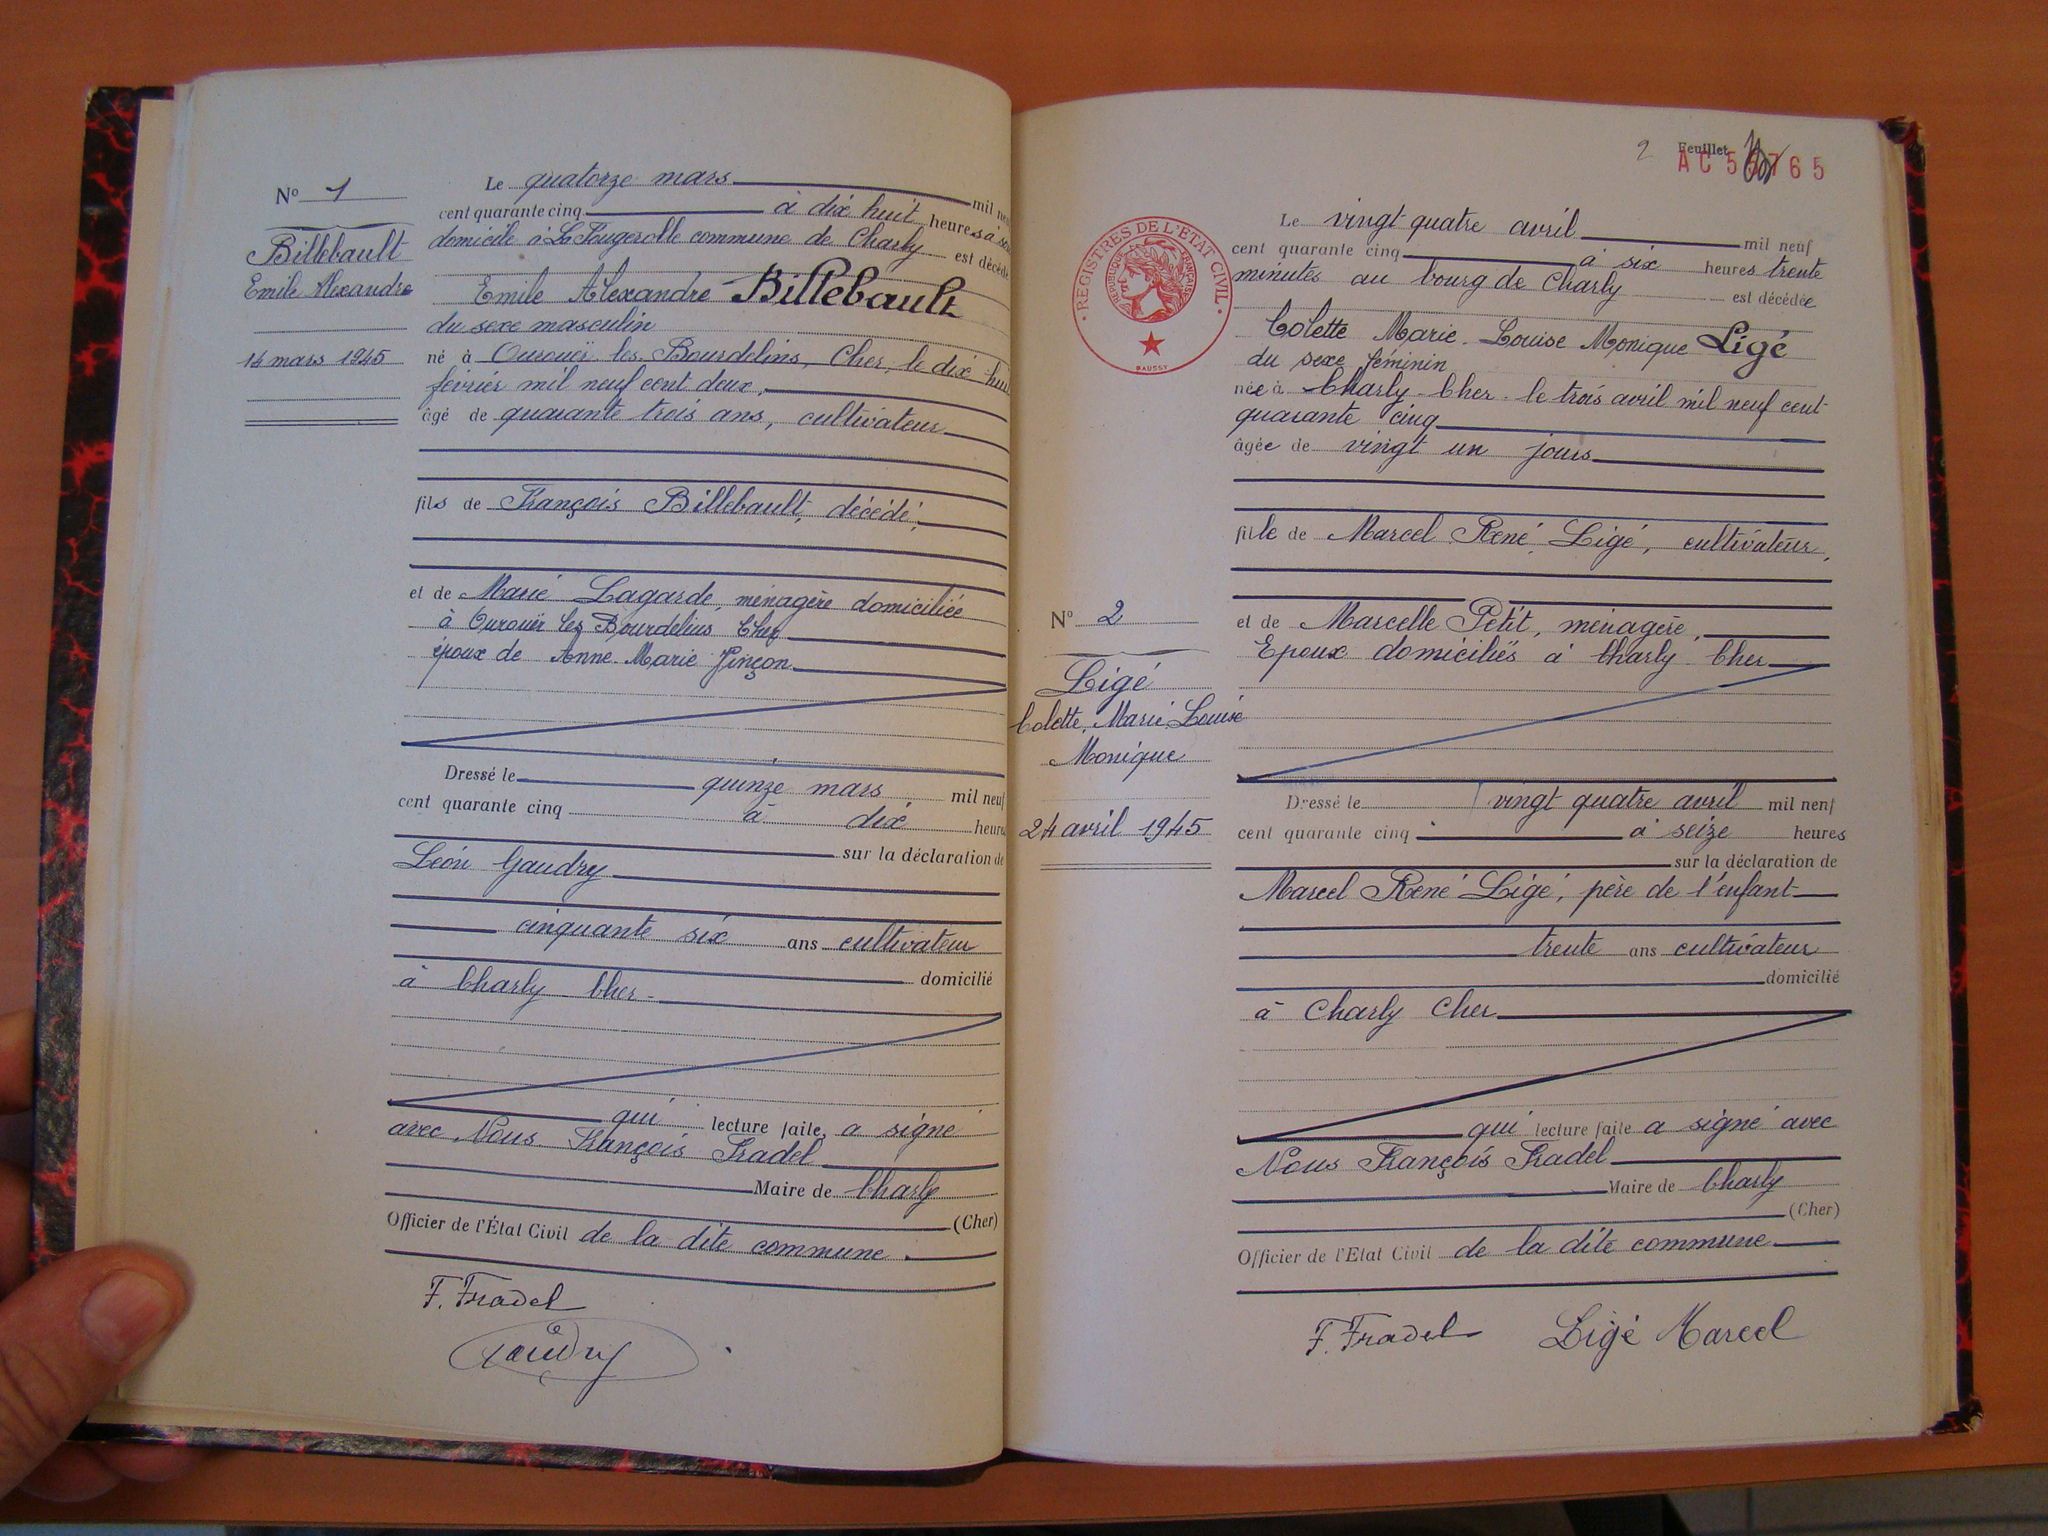 Nº 1
Billebault
Emile Alexandre
14 mars 1945
Le quatorze mars mil neuf
cent quarante cinq à dix huit heures à son
domicile à La Fougerolle commune de Charly est décédé
Emile Alexandre Billebault
du sexe masculin
né à Ourouër les Bourdelins, Cher, le dix huit
février mil neuf cent deux,
âgé de quarante trois ans, cultivateur
fils de François Billebault, décédé,
et de Marie Lagarde, ménagère domiciliée
à Ourouër les Bourdelins Cher
époux de Anne Marie Pinçon
Dressé le quinze mars mil neuf
cent quarante cinq à dix heures
sur la déclaration de
Léon Gaudry
cinquante six ans cultivateur
domicilié
à Charly Cher
qui lecture faite, a signé
avec Nous François Fradel
Maire de Charly
(Cher)
Officier de l'État Civil de la dite commune.
F. Fradel
Gaudry
2 Feuillet
AC 5 765
REGISTRES DE L'ETAT CIVIL
REPUBLIQUE FRANÇAISE
DAUSSY
Le vingt quatre avril mil neuf
cent quarante cinq à six heures trente
minutes au bourg de Charly est décédée
Colette Marie-Louise Monique Ligé
du sexe féminin
née à Charly Cher le trois avril mil neuf cent
quarante cinq
âgée de vingt un jours
fille de Marcel René Ligé, cultivateur,
Nº 2
Ligé
Colette, Marie Louise
Monique
24 avril 1945
et de Marcelle Petit, ménagère,
Epoux domiciliés à Charly Cher
Dressé le vingt quatre avril mil neuf
cent quarante cinq à seize heures
sur la déclaration de
Marcel René Ligé, père de l'enfant
trente ans cultivateur
domicilié
à Charly Cher
qui lecture faite a signé avec
Nous François Fradel
Maire de Charly
(Cher)
Officier de l'Etat Civil de la dite commune
F. Fradel Ligé Marcel